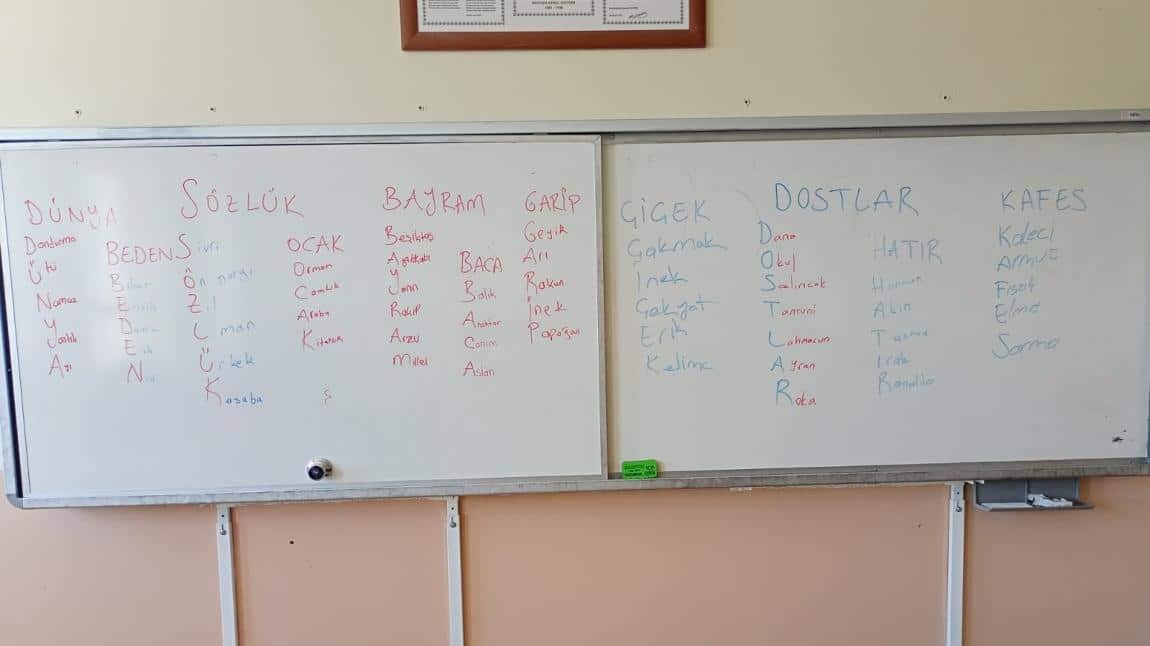 DÜNYA
Dondurma
Ütü
Namaz
Yastık
Ayı
BEDEN
Bahar
Erik
Nar
SÖZLÜK
Sivri
Ön yargı
Zil
Liman
Ürkek
Kasaba
OCAK
Orman
Camlık
Araba
Kitaplık
BAYRAM
Beşiktaş
Ayakkabı
Yarın
Rakip
Arzu
Millet
BACA
Balık
Anahtar
Canım
Aslan
GARİP
Geyik
Arı
Rakun
İnek
Papağan
ÇİÇEK
Çakmak
İnek
Erik
Kelime
DOSTLAR
Dana
Okul
Salıncak
Tantuni
Lahmacun
Ayran
Roka
HATIR
Harman
Akın
Irak
KAFES
Kaleci
Armut
Fıstık
Elma
Sarma